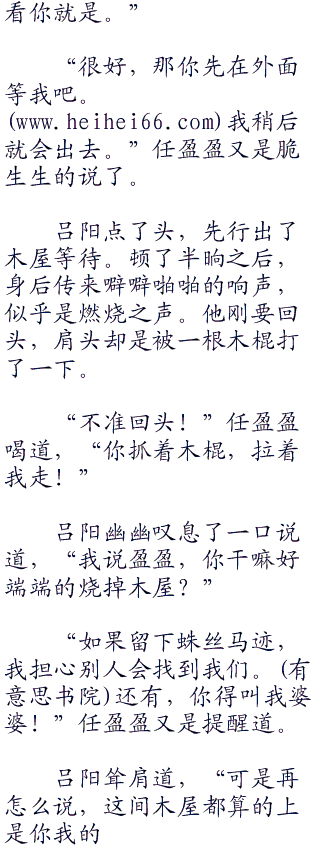 看你就是。”
“很好，那你先在外面
等我吧。
(www.heihei66.com)我稍后
就会出去。”任盈盈又是脆
生生的说了。
吕阳点了头，先行出了
木屋等待。顿了半晌之后，
身后传来噼噼啪啪的响声，
似乎是燃烧之声。他刚要回
头，肩头却是被一根木棍打
了一下。
“不准回头！”任盈盈
喝道，“你抓着木棍，拉着
我走！”
吕阳幽幽叹息了一口说
道，“我说盈盈，你干嘛好
端端的烧掉木屋？”
“如果留下蛛丝马迹，
我担心别人会找到我们。(有
意思书院)还有，你得叫我婆
婆！”任盈盈又是提醒道。
吕阳耸肩道，“可是再
怎么说，这间木屋都算的上
是你我的